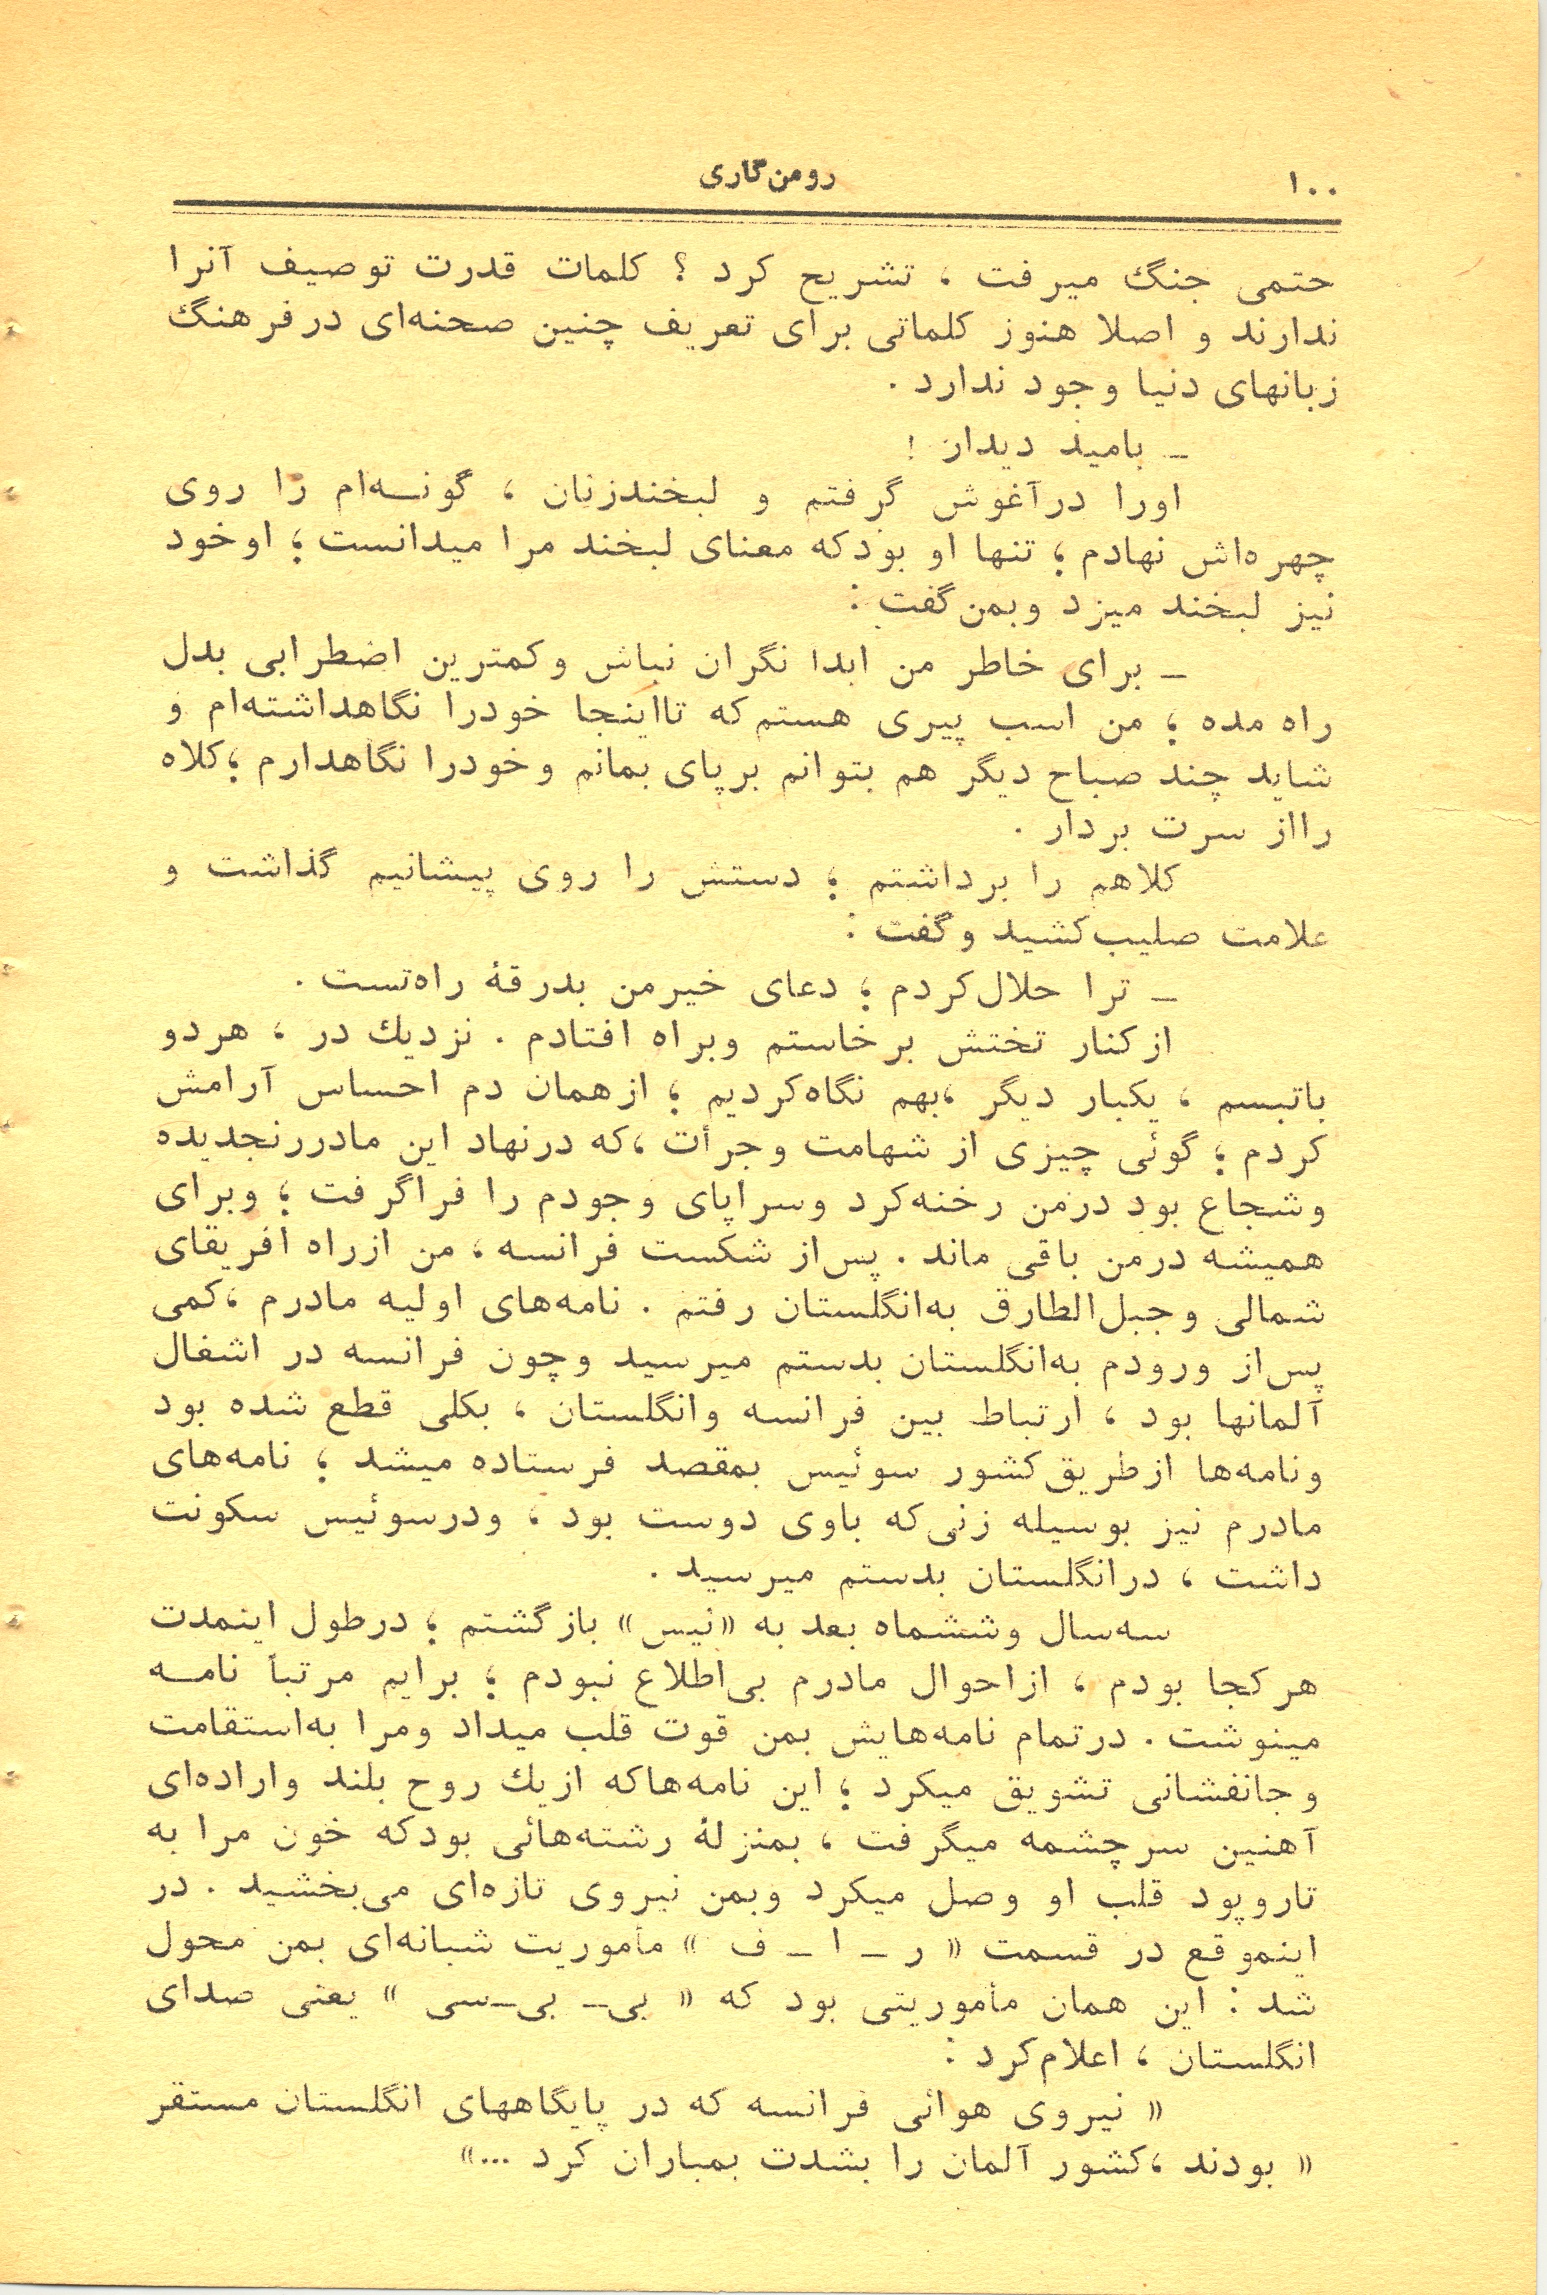 ۱۰۰
رومن‌گاری
حتمی جنگ میرفت ، تشریح کرد ؟ کلمات قدرت توصیف آنرا
ندارند و اصلا هنوز کلماتی برای تعریف چنین صحنه‌ای درفرهنگ
زبانهای دنیا وجود ندارد .
ـ بامید دیدار !
اورا درآغوش گرفتم و لبخندزنان ، گونـه‌ام را روی
چهره‌اش نهادم ؛ تنها او بودکه معنای لبخند مرا میدانست ؛ اوخود
نیز لبخند میزد وبمن‌گفت :
ـ برای خاطر من ابدا نگران نباش وکمترین اضطرابی بدل
راه مده ؛ من اسب پیری هستم‌که تااینجا خودرا نگاهداشته‌ام و
شاید چند صباح دیگر هم بتوانم برپای بمانم وخودرا نگاهدارم ؛کلاه
رااز سرت بردار .
کلاهم را برداشتم ؛ دستش را روی پیشانیم گذاشت و
علامت صلیب‌کشید وگفت :
ـ ترا حلال‌کردم ؛ دعای خیرمن بدرقهٔ راه‌تست .
ازکنار تختش برخاستم وبراه افتادم . نزدیك در ، هردو
باتبسم ، یکبار دیگر ،بهم نگاه‌کردیم ؛ ازهمان دم احساس آرامش
کردم ؛ گوئی چیزی از شهامت وجرأت ،که درنهاد این مادررنجدیده
وشجاع بود درمن رخنه‌کرد وسراپای وجودم را فراگرفت ؛ وبرای
همیشه درمن باقی ماند . پس‌از شکست فرانسه ، من ازراه افریقای
شمالی وجبل‌الطارق به‌انگلستان رفتم . نامه‌های اولیه مادرم ،کمی
پس‌از ورودم به‌انگلستان بدستم میرسید وچون فرانسه در اشغال
آلمانها بود ، ارتباط بین فرانسه وانگلستان ، بکلی قطع شده بود
ونامه‌ها ازطریق‌کشور سوئیس بمقصد فرستاده میشد ؛ نامه‌های
مادرم نیز بوسیله زنی‌که باوی دوست بود ، ودرسوئیس سکونت
داشت ، درانگلستان بدستم میرسید .
سه‌سال وششماه بعد به «نیس» بازگشتم ؛ درطول اینمدت
هرکجا بودم ، ازاحوال مادرم بی‌اطلاع نبودم ؛ برایم مرتباً نامـه
مینوشت . درتمام نامه‌هایش بمن قوت قلب میداد ومرا به‌استقامت
وجانفشانی تشویق میکرد ؛ این نامه‌هاکه ازیك روح بلند واراده‌ای
آهنین سرچشمه میگرفت ، بمنزلهٔ رشته‌هائی بودکه خون مرا به
تاروپود قلب او وصل میکرد وبمن نیروی تازه‌ای می‌بخشید . در
اینموقع در قسمت « ر ـ ا ـ ف » مأموریت شبانه‌ای بمن محول
شد : این همان مأموریتی بود که « بی‌ـ بی‌ـ‌سی » یعنی صدای
انگلستان ، اعلام‌کرد :
« نیروی هوائی فرانسه که در پایگاههای انگلستان مستقر
« بودند ،کشور آلمان را بشدت بمباران کرد ...»